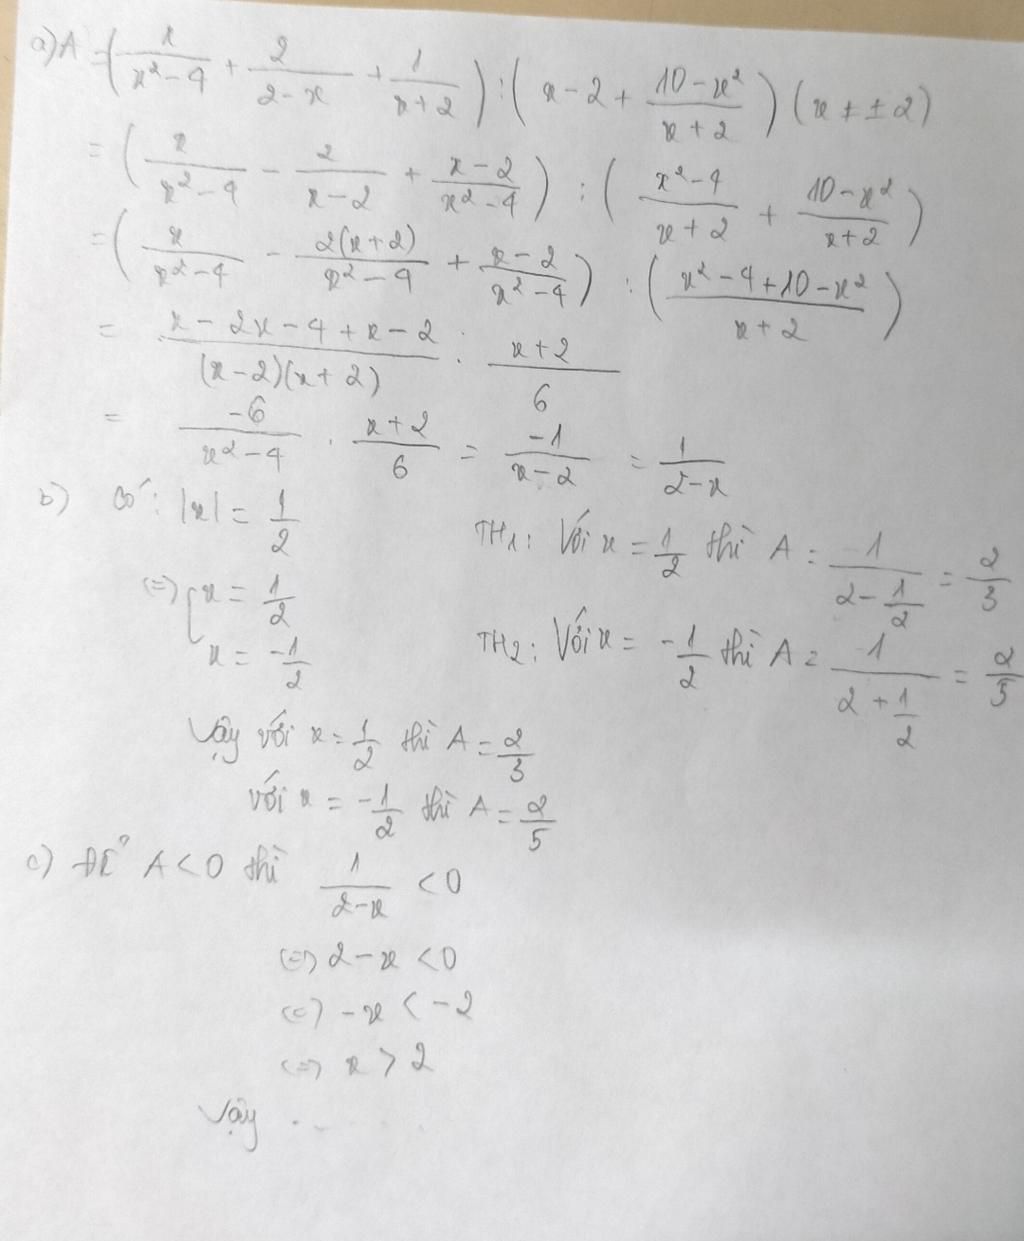 a) A = (x/(x²-4) + 2/(2-x) + 1/(x+2)) : (x-2 + (10-x²)/(x+2)) (x ≠ ±2)
= (x/(x²-4) - 2/(x-2) + (x-2)/(x²-4)) : ((x²-4)/(x+2) + (10-x²)/(x+2))
= (x/(x²-4) - 2(x+2)/(x²-4) + (x-2)/(x²-4)) : ((x²-4+10-x²)/(x+2))
= (x-2x-4+x-2)/((x-2)(x+2)) . (x+2)/6
= -6/(x²-4) . (x+2)/6 = -1/(x-2) = 1/(2-x)
b) Có: |x| = 1/2
<=> [x = 1/2
x = -1/2
TH1: Với x = 1/2 thì A = 1/(2-1/2) = 2/3
TH2: Với x = -1/2 thì A = 1/(2+1/2) = 2/5
Vậy với x = 1/2 thì A = 2/3
với x = -1/2 thì A = 2/5
c) Để A < 0 thì 1/(2-x) < 0
<=> 2-x < 0
<=> -x < -2
<=> x > 2
Vậy ......